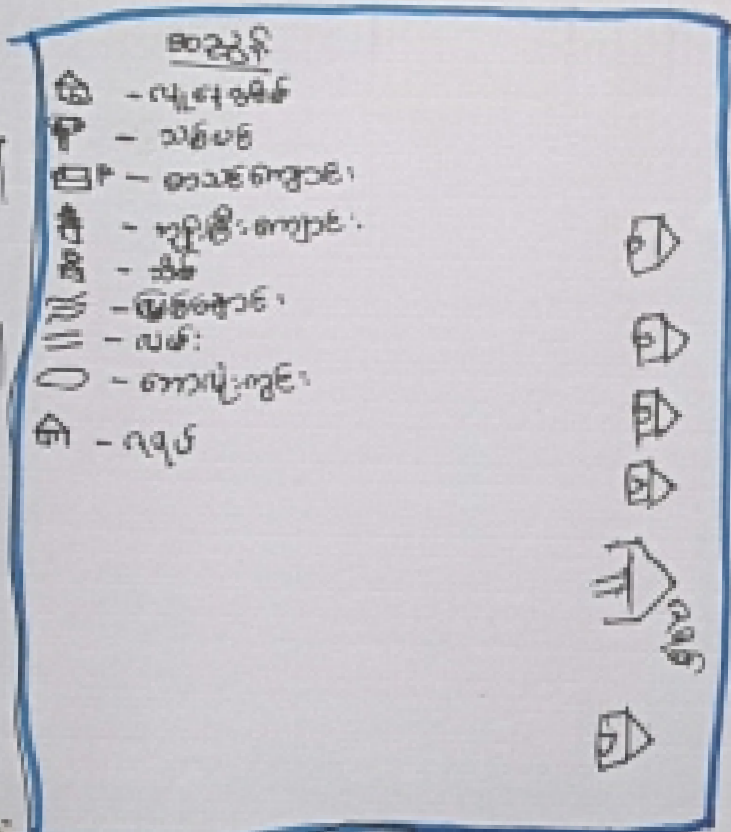 စာညွှန်း
- လူနေအိမ်
- သစ်ပင်
- စာသင်ကျောင်း
- ဘုန်းကြီးကျောင်း
- စိမ်
- မြစ်ချောင်း
- လမ်း
- ဘောလုံးကွင်း
- ဂရပ်
ဂရပ်